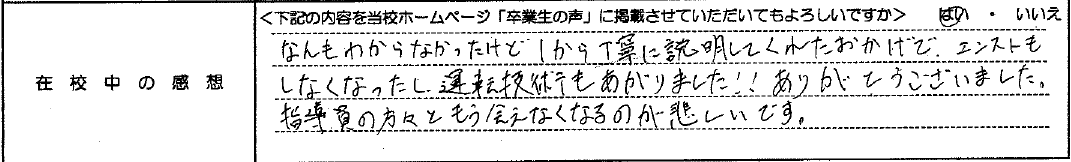 <下記の内容を当校ホームページ「卒業生の声」に掲載させていただいてもよろしいですか> はい ・ いいえ
在校中の感想
なんもわからなかったけど1から丁寧に説明してくれたおかげで、エンストも
しなくなったし、運転技術もあがりました!!ありがとうございました。
指導員の方々ともう会えなくなるのが悲しいです。